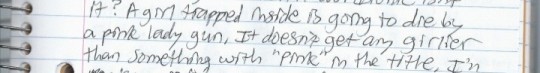 it? A girl trapped inside is going to die by
a pink lady gun, It doesn't get any girlier
than something with "Pink" in the title, I'n